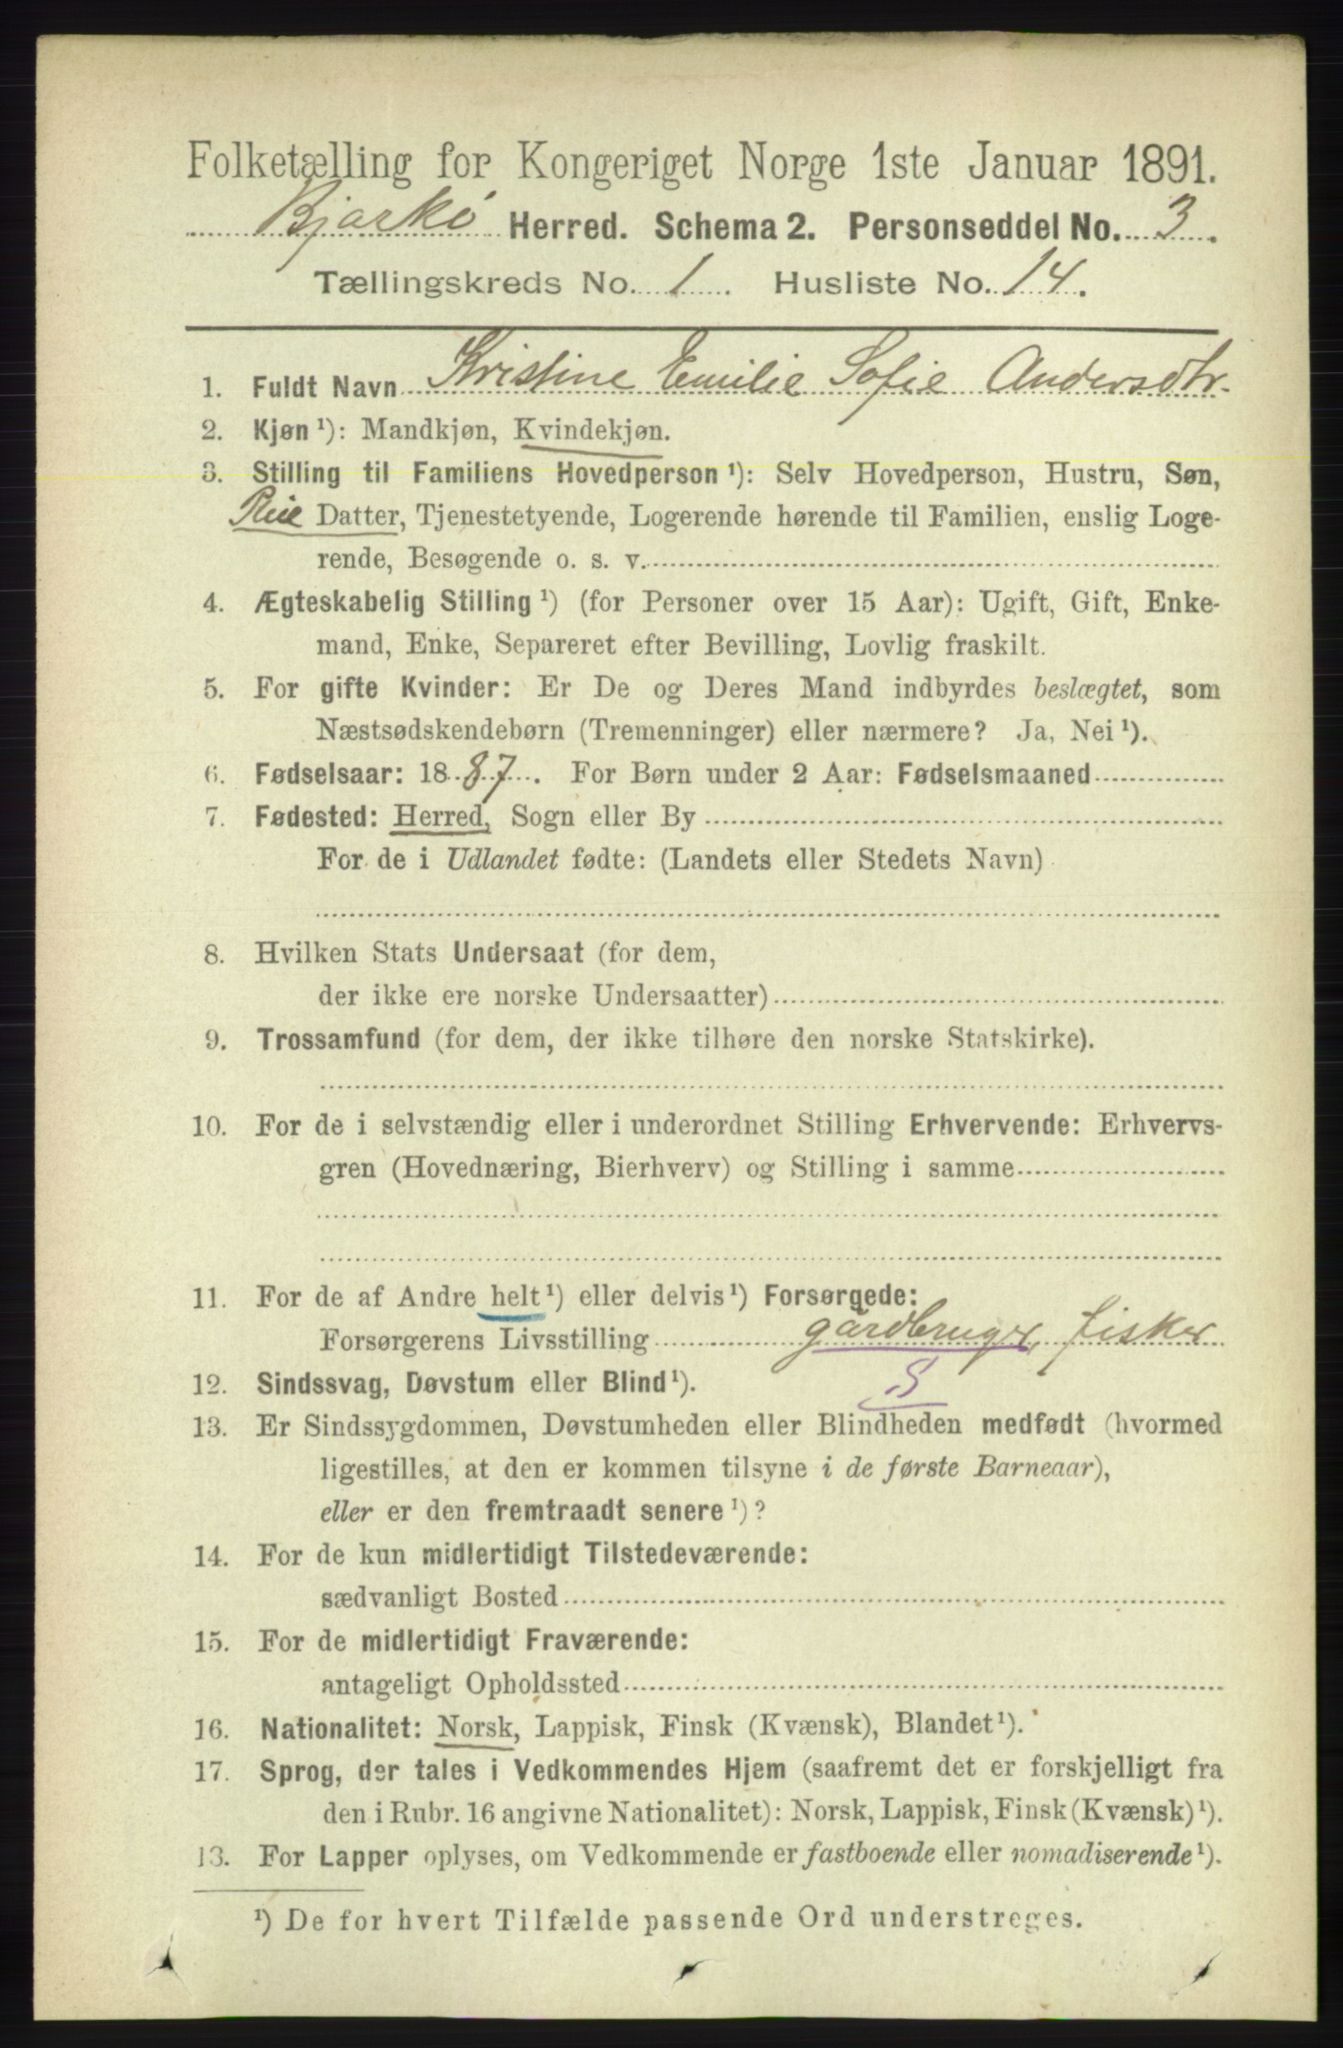 Folketælling for Kongeriget Norge 1ste Januar 1891.
Bjarkø Herred. Schema 2. Personseddel No. 3.
Tællingskreds No. 1 Husliste No. 14.
1. Fuldt Navn Kristine Emilie Sofie Andersdtr.
2. Kjøn ¹): Mandkjøn, Kvindekjøn.
3. Stilling til Familiens Hovedperson ¹): Selv Hovedperson, Hustru, Søn,
Datter, Tjenestetyende, Logerende hørende til Familien, enslig Loge-
rende, Besøgende o. s. v.
4. Ægteskabelig Stilling ¹) (for Personer over 15 Aar): Ugift, Gift, Enke-
mand, Enke, Separeret efter Bevilling, Lovlig fraskilt.
5. For gifte Kvinder: Er De og Deres Mand indbyrdes beslægtet, som
Næstsødskendebørn (Tremenninger) eller nærmere? Ja, Nei ¹).
6. Fødselsaar: 1887. For Børn under 2 Aar: Fødselsmaaned
7. Fødested: Herred, Sogn eller By
For de i Udlandet fødte: (Landets eller Stedets Navn)
8. Hvilken Stats Undersaat (for dem,
der ikke ere norske Undersaatter)
9. Trossamfund (for dem, der ikke tilhøre den norske Statskirke).
10. For de i selvstændig eller i underordnet Stilling Erhvervende: Erhvervs-
gren (Hovednæring, Bierhverv) og Stilling i samme
11. For de af Andre helt ¹) eller delvis ¹) Forsørgede:
Forsørgerens Livsstilling gårdbruger, fisker
12. Sindssvag, Døvstum eller Blind ¹). S
13. Er Sindssygdommen, Døvstumheden eller Blindheden medfødt (hvormed
ligestilles, at den er kommen tilsyne i de første Barneaar),
eller er den fremtraadt senere ¹)?
14. For de kun midlertidigt Tilstedeværende:
sædvanligt Bosted
15. For de midlertidigt Fraværende:
antageligt Opholdssted
16. Nationalitet: Norsk, Lappisk, Finsk (Kvænsk), Blandet ¹).
17. Sprog, der tales i Vedkommendes Hjem (saafremt det er forskjelligt fra
den i Rubr. 16 angivne Nationalitet): Norsk, Lappisk, Finsk (Kvænsk) ¹).
13. For Lapper oplyses, om Vedkommende er fastboende eller nomadiserende ¹).
¹) De for hvert Tilfælde passende Ord understreges.